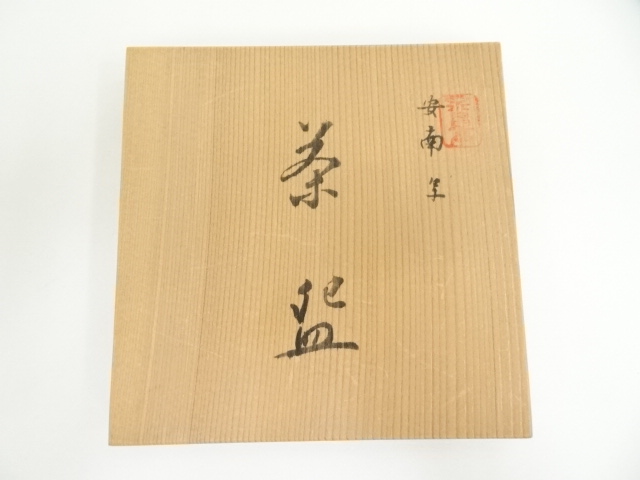 安南写
茶盌